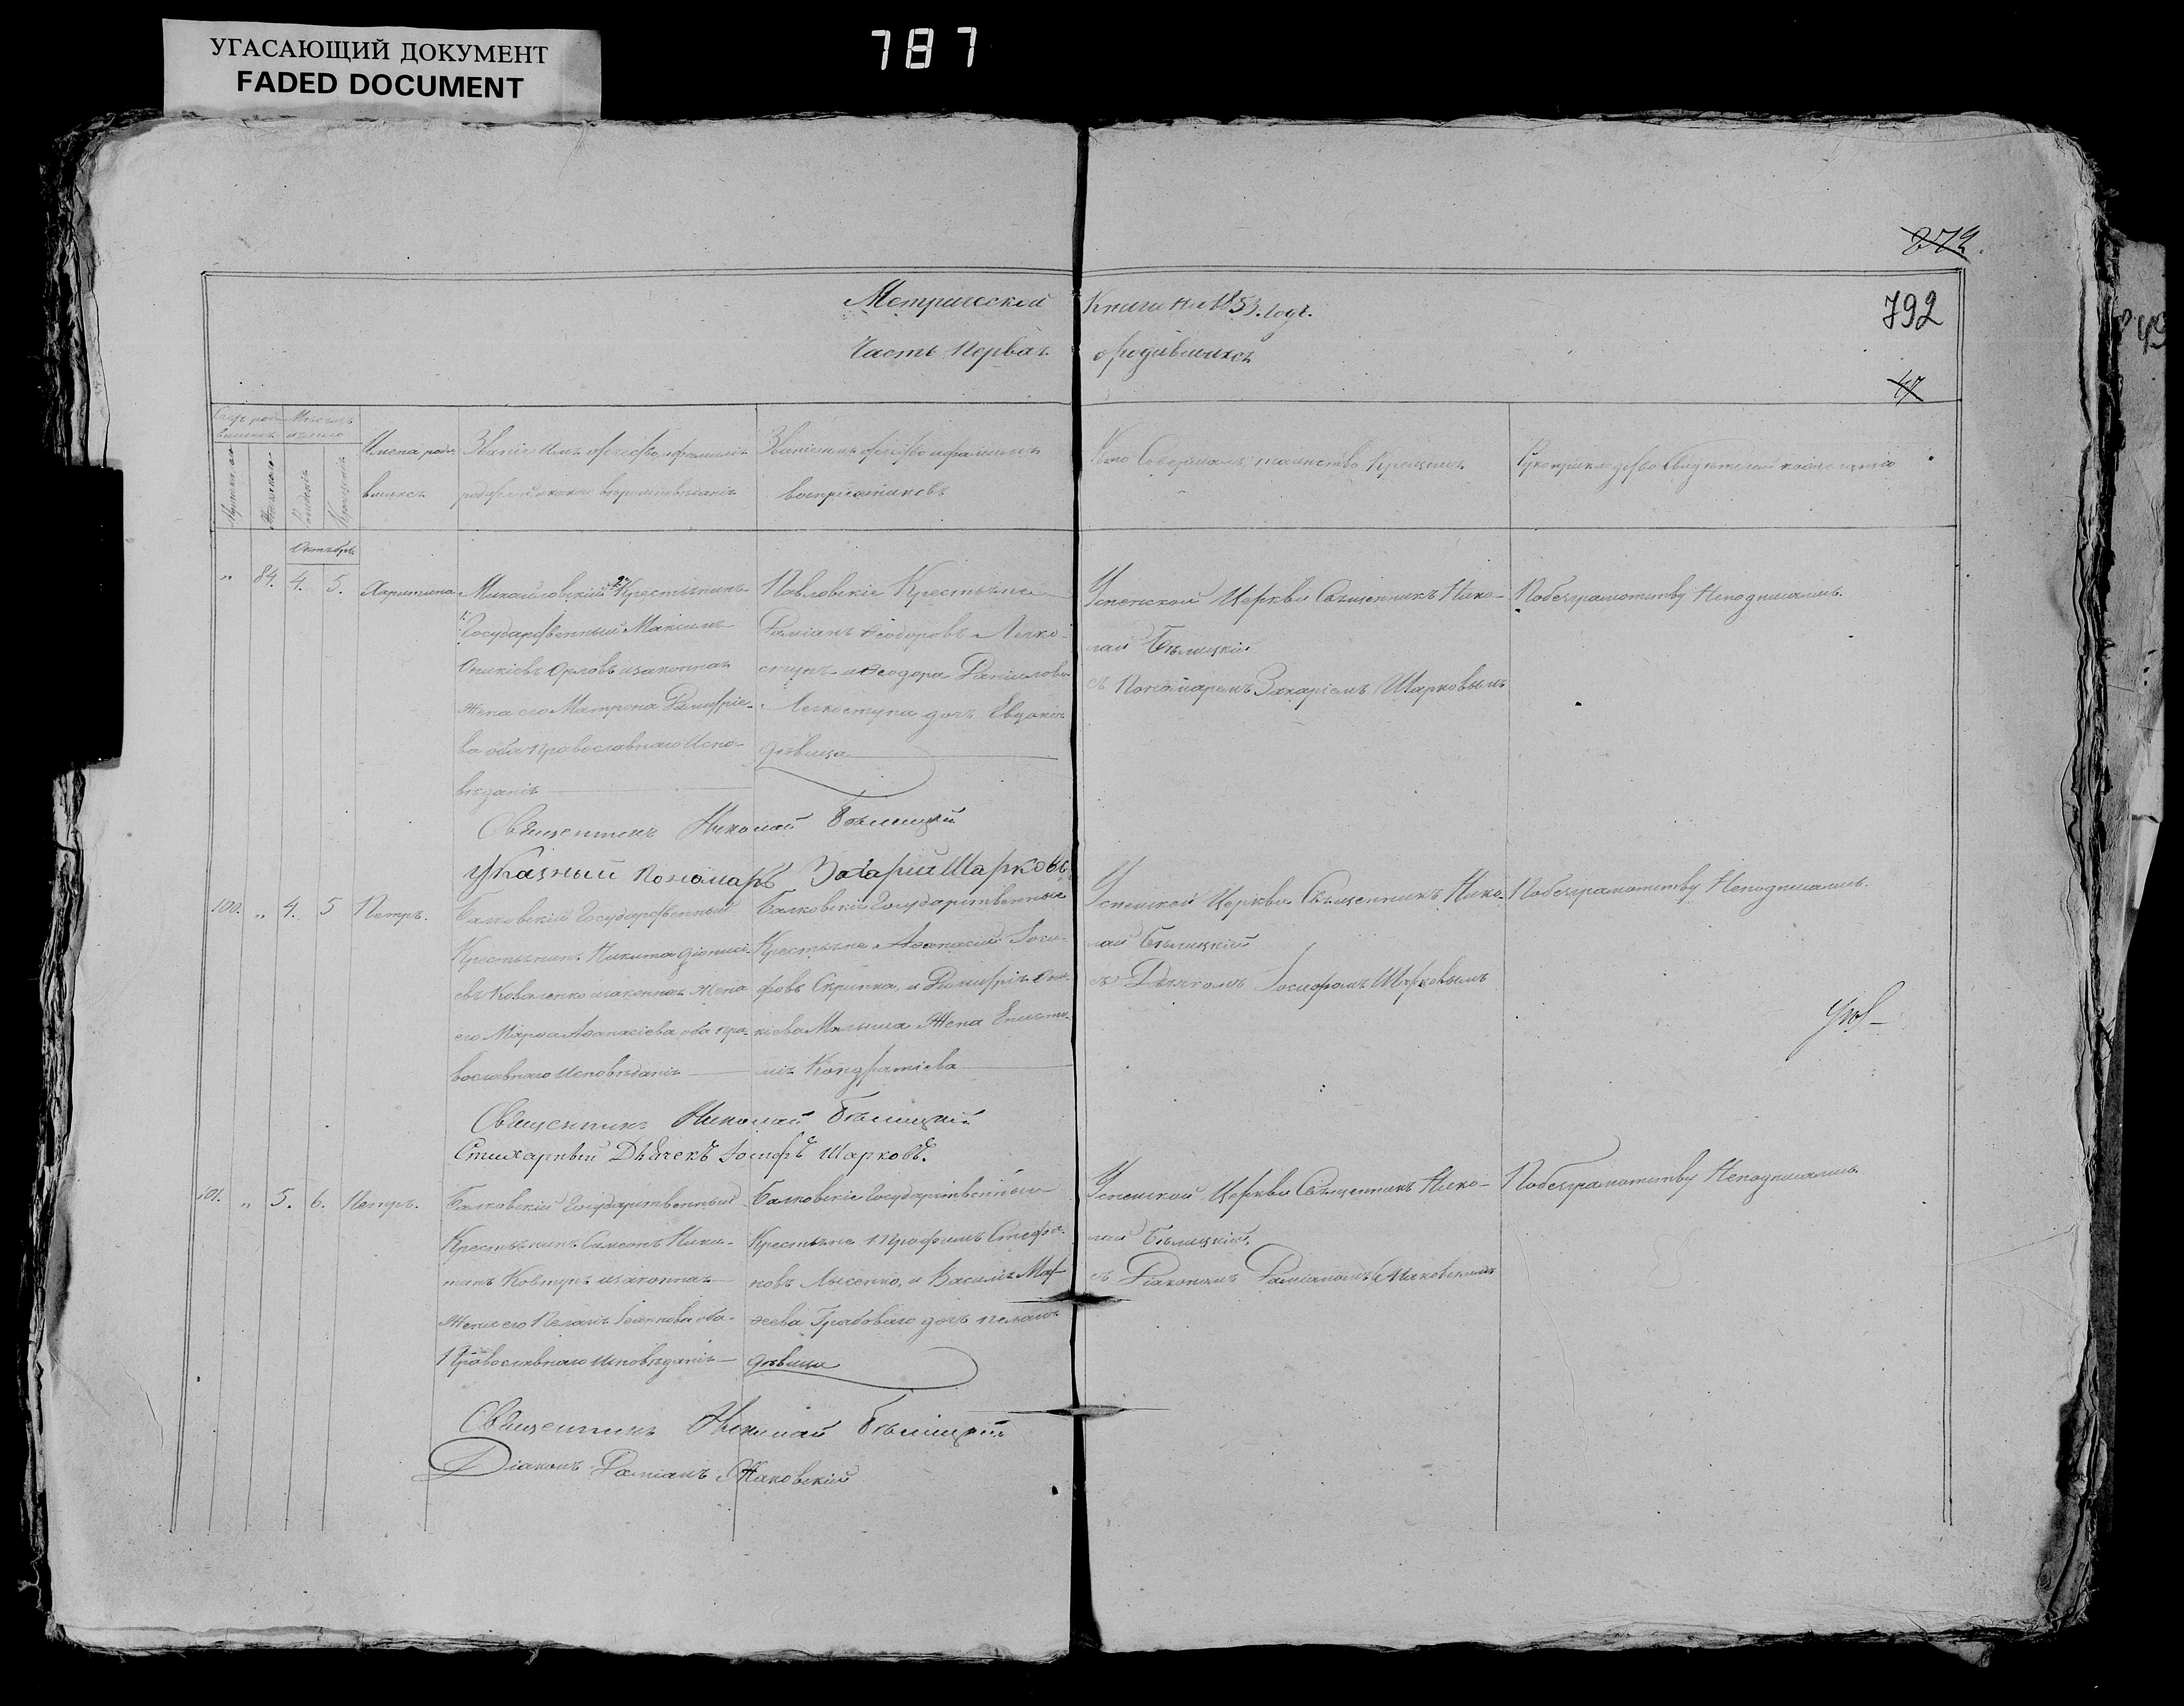 УГАСАЮЩИЙ ДОКУМЕНТ
FADED DOCUMENT
787
272.
792
47
Метрической Книги на 1853. годъ.
Часть Первая о родившихся
Счетъ родившихся
Мѣсяцъ и число
Мужеска
Женска
Рожденія
Крещенія
Имена родившихся
Званіе имя отчество и фамилія
родителей и какого вѣроисповѣданія
Званіе имя отчество и фамилія
воспріемниковъ
Кто Совершалъ таинство Крещенія
Рукоприкладство Свидѣтелей по желанію
Октябрь
" 84. 4. 5. Харитина
Михайловскій Крестьянинъ
Государственный Максимъ
Орловъ и законная
жена его Матрона Димитріе-
ва оба Православнаго Испо-
вѣданія
Павловскіе Крестьяне
Даміанъ Ѳеодоровъ Легко-
ступъ и Ѳеодора Даніилова
Легкоступа дочь Евдокія
дѣвица
Успенской Церкви Священникъ Нико-
лай Бѣлицкій
съ Пономаремъ Захаріемъ Шарковымъ
По безграмотству Неподписались.
Священникъ Николай Бѣлицкій
Указный Пономарь Захарій Шарковъ
100. " 4. 5 Петръ.
Балковскій Государственный
Крестьянинъ Никита Діонисі-
евъ Коваленко и законная жена
его Марѳа Аѳанасіева оба пра-
вославнаго Исповѣданія
Балковскіе Государственные
Крестьяне Аѳанасій Іоси-
фовъ Скрипка, и Димитрія Они-
кіева Малыша Жена Евѳи-
мія Кондратіева
Успенской Церкви Священникъ Нико-
лай Бѣлицкій
съ Дьячкомъ Іосифомъ Шарковымъ
По безграмотству Неподписались.
Священникъ Николай Бѣлицкій
Стихарный Дьячекъ Іосифъ Шарковъ.
101. " 5. 6. Петръ.
Балковскій Государственный
Крестьянинъ Симеонъ Ники-
тинъ Ковтунъ и законная
Жена его Пелагія Іоаннова оба
Православнаго Исповѣданія
Балковскіе Государственные
Крестьяне Трофимъ Стефа-
новъ Лысенко, и Василія Мат-
ѳеева Грабоваго дочь Пелагія
дѣвица
Успенской Церкви Священникъ Нико-
лай Бѣлицкій,
съ Діакономъ Даміаномъ
По безграмотству Неподписались.
Священникъ Николай Бѣлицкій
Діаконъ Даміанъ